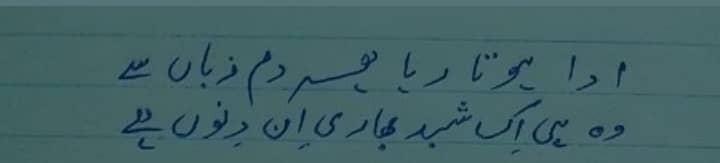 ادا ہوتا رہا ہر دم زباں سے
وہ ہی اک شبد بھاری ان دنوں ہے